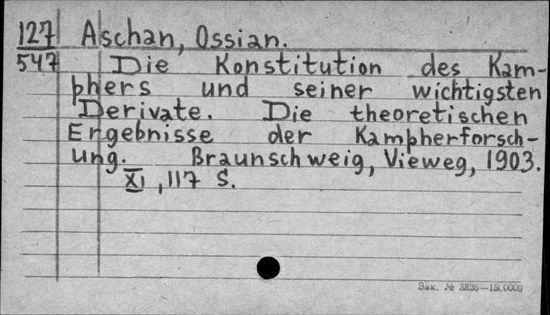 127 Aschan, Ossian.
547 Die Konstitution des Kam-
phers und seiner wichtigsten
Derivate. Die theoretischen
Ergebnisse der Kampherforsch-
ung. Braunschweig, Vieweg, 1903.
XI, 117 S.
Зак. № 3826—150000